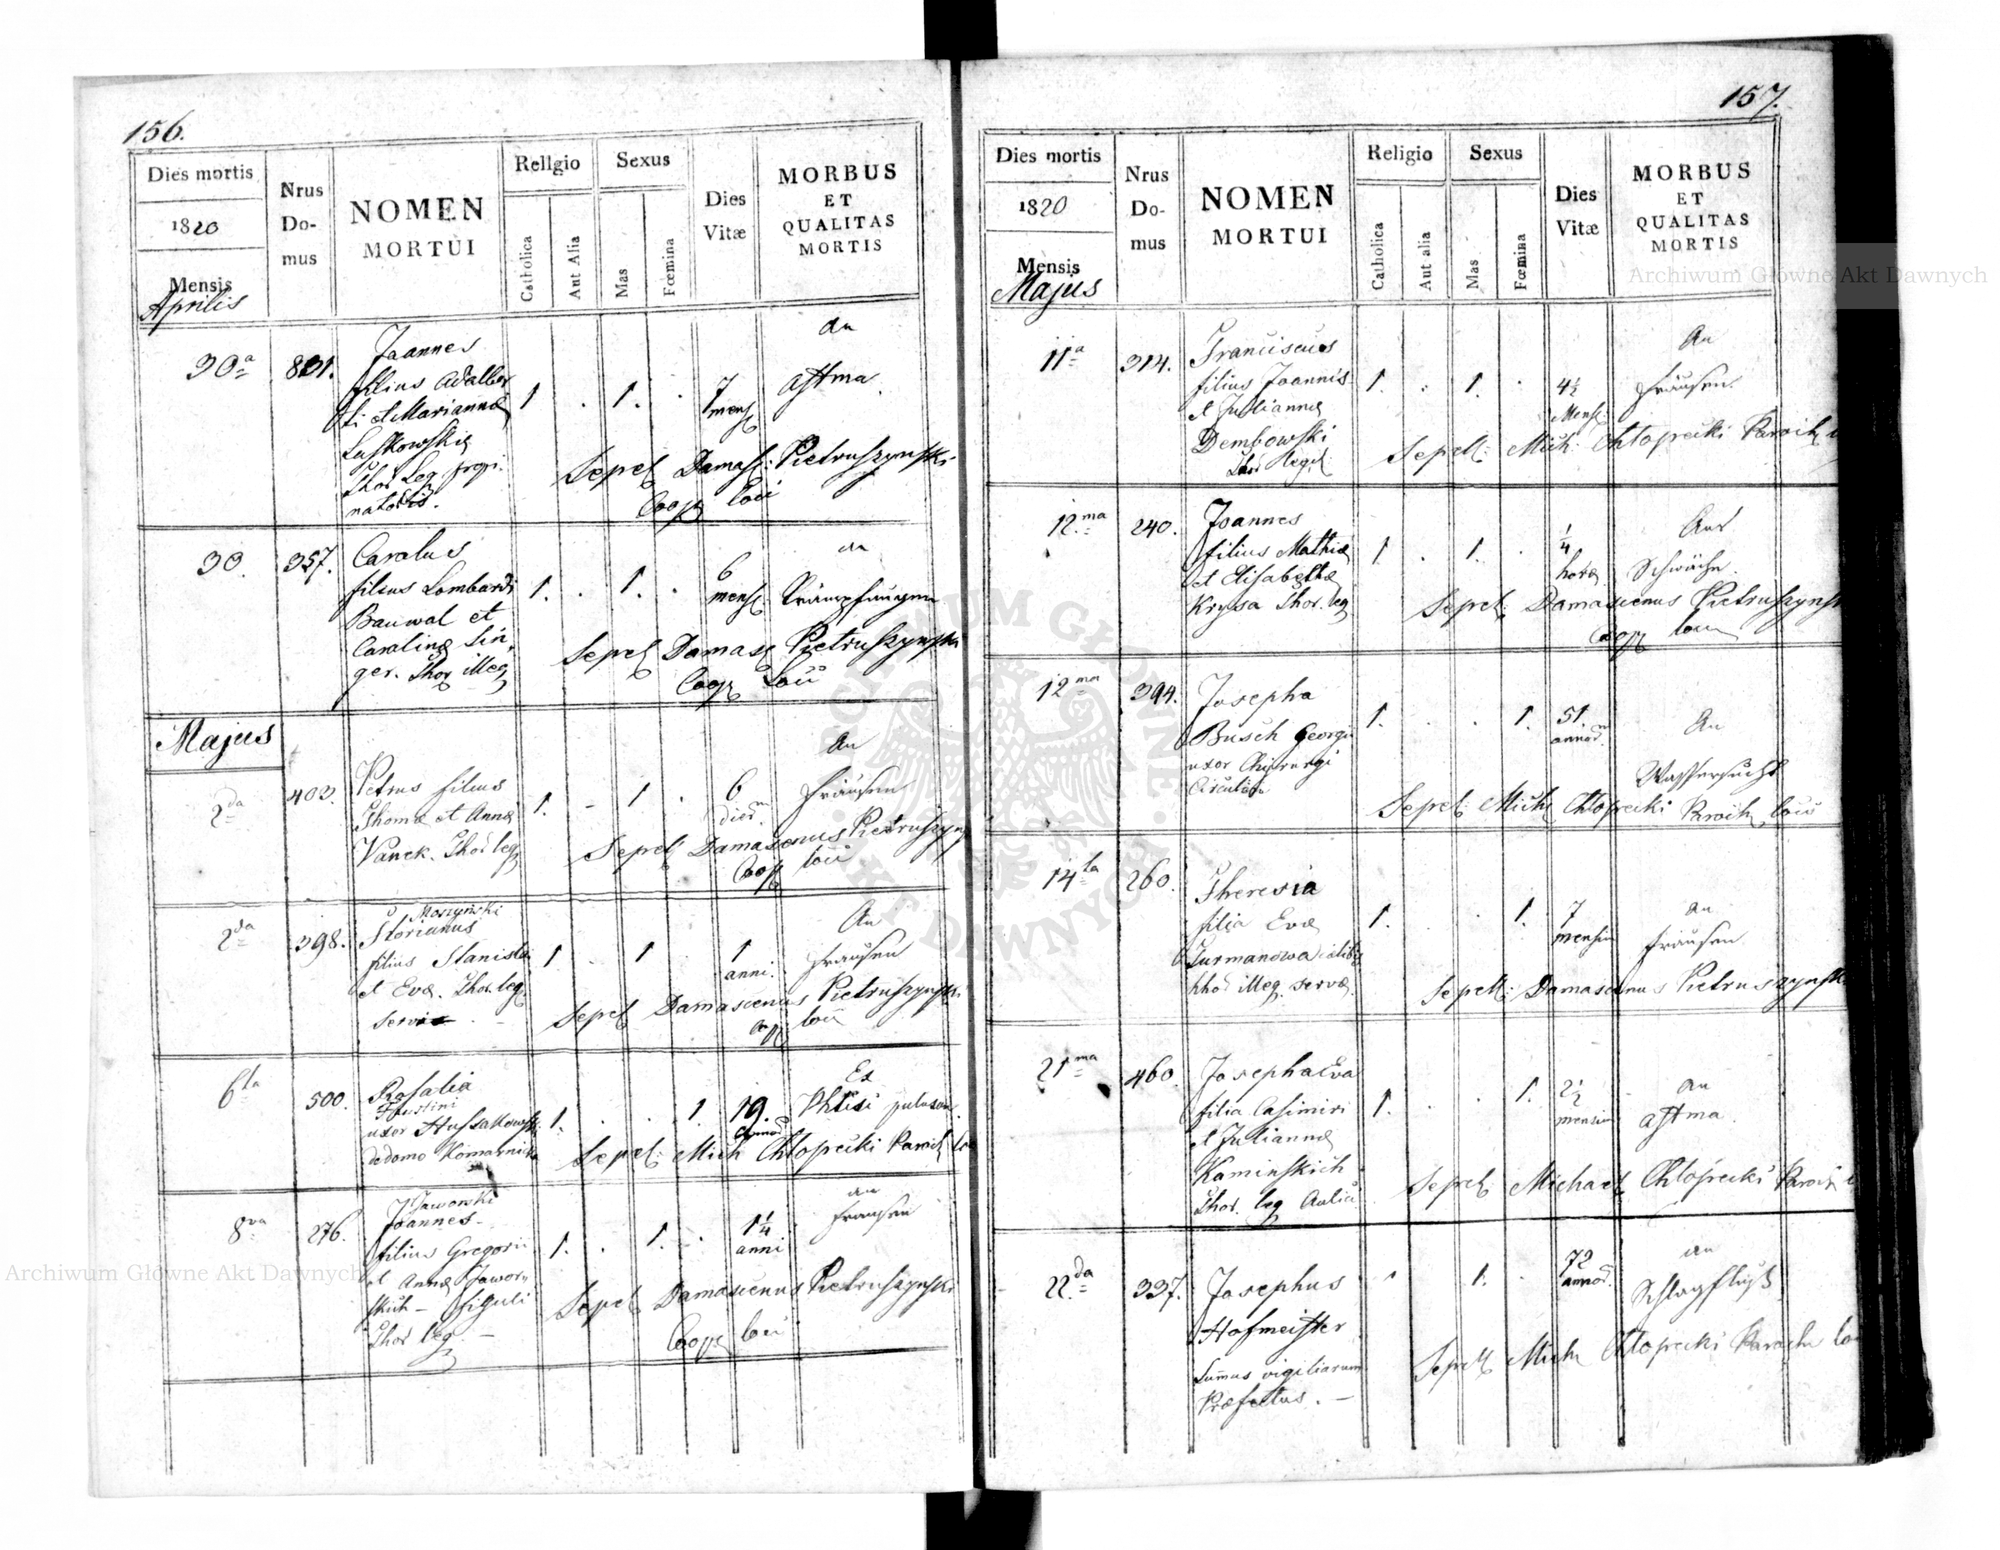 156.
Dies mortis
1820
Mensis
Aprilis
Nrus
Do-
mus
NOMEN
MORTUI
Religio
Catholica
Aut Alia
Sexus
Mas
Fœmina
Dies
Vitæ
MORBUS
ET
QUALITAS
MORTIS
30a
Joannes
filius Adalber
ti et Mariannæ
Thor Leg propi
natoris.
1 . 1. .
7
mens
An
Astma
Sepel Damas: Pietruszynski
Coop loci
30.
357.
Carolus
filius Lombardi
Bauwal et
Carolinæ Sin
ger. Thor illeg
1. . 1. .
6
mens
an
Sepel Damasc Pietruszynski
Coop Loci
Majus
2da
402.
Petrus filius
Thomæ et Annæ
Vanek. Thor leg
1. - 1 .
6
dier.
An
Fraisen
Sepel Damascenus Pietruszyns
Coop loci
2da
398.
Moszynski
Florianus
filius Stanislai
et Evæ. Thor leg
1 . 1 .
1
anni.
An
Fraisen
Sepel Damascenus Pietruszynski
Coop loci
6ta
500.
Rosalia
Faustini
uxor Hussakowski
de domo Komarnicka
1. . . 1
19.
annor
Ex
Phtisi pulmon.
Sepel: Mich Chłopecki Paroch loc
8va
276.
Jaworski
Joannes
filius Gregorii
et Annæ Jawor
skich - figuli
Thor leg -
1. . 1. .
1 1/4
anni
an
Fraisen
Sepel Damascenus Pietruszynski
Coop loci
157.
Dies mortis
1820
Mensis
Majus
Nrus
Do-
mus
NOMEN
MORTUI
Religio
Catholica
Aut alia
Sexus
Mas
Fœmina
Dies
Vitæ
MORBUS
ET
QUALITAS
MORTIS
11a
314.
Franciscus
filius Joannis
et Juliannæ
Dembowski
Thor legit.
1. . 1. .
4 1/2
Mens
An
Fraisen.
Sepel: Mich: Chłopecki Paroch
12.ma
240.
Joannes
filius Mathiæ
et Elisabethæ
Krysa Thor. leg
1 . 1. .
1/4
horæ
Aus
Schwäche.
Sepel: Damascenus Pietruszynsk
Coop loci
12ma
394.
Josepha
Busch Georgii
uxor Chirurgi
1. . . 1.
51.
annor.
An
Wassersucht
Sepel: Mich Chłopecki Paroch loci
14ta
260.
Theresia
filia Evæ
Furmanowa
thor illeg. servæ.
1. . . 1.
7
mensiu
an
Fraisen
Sepell: Damascenus Pietruszynsk
21ma
460.
Josepha Eva
filia Casimiri
et Juliannæ
Kaminskich
Thor. leg
1. . . 1.
2 1/2
mensiu
an
Astma.
Sepel: Michael Chłopecki Paroch
22.da
337.
Josephus
Hofmeister
vigiliarum
Præfectus. -
1 1. .
72
annor.
an
Schlagfluß
Sepell Mich Chłopecki Paroch lo
Archiwum Główne Akt Dawnych
Archiwum Główne Akt Dawnych
ARCHIWUM GŁÓWNE AKT DAWNYCH